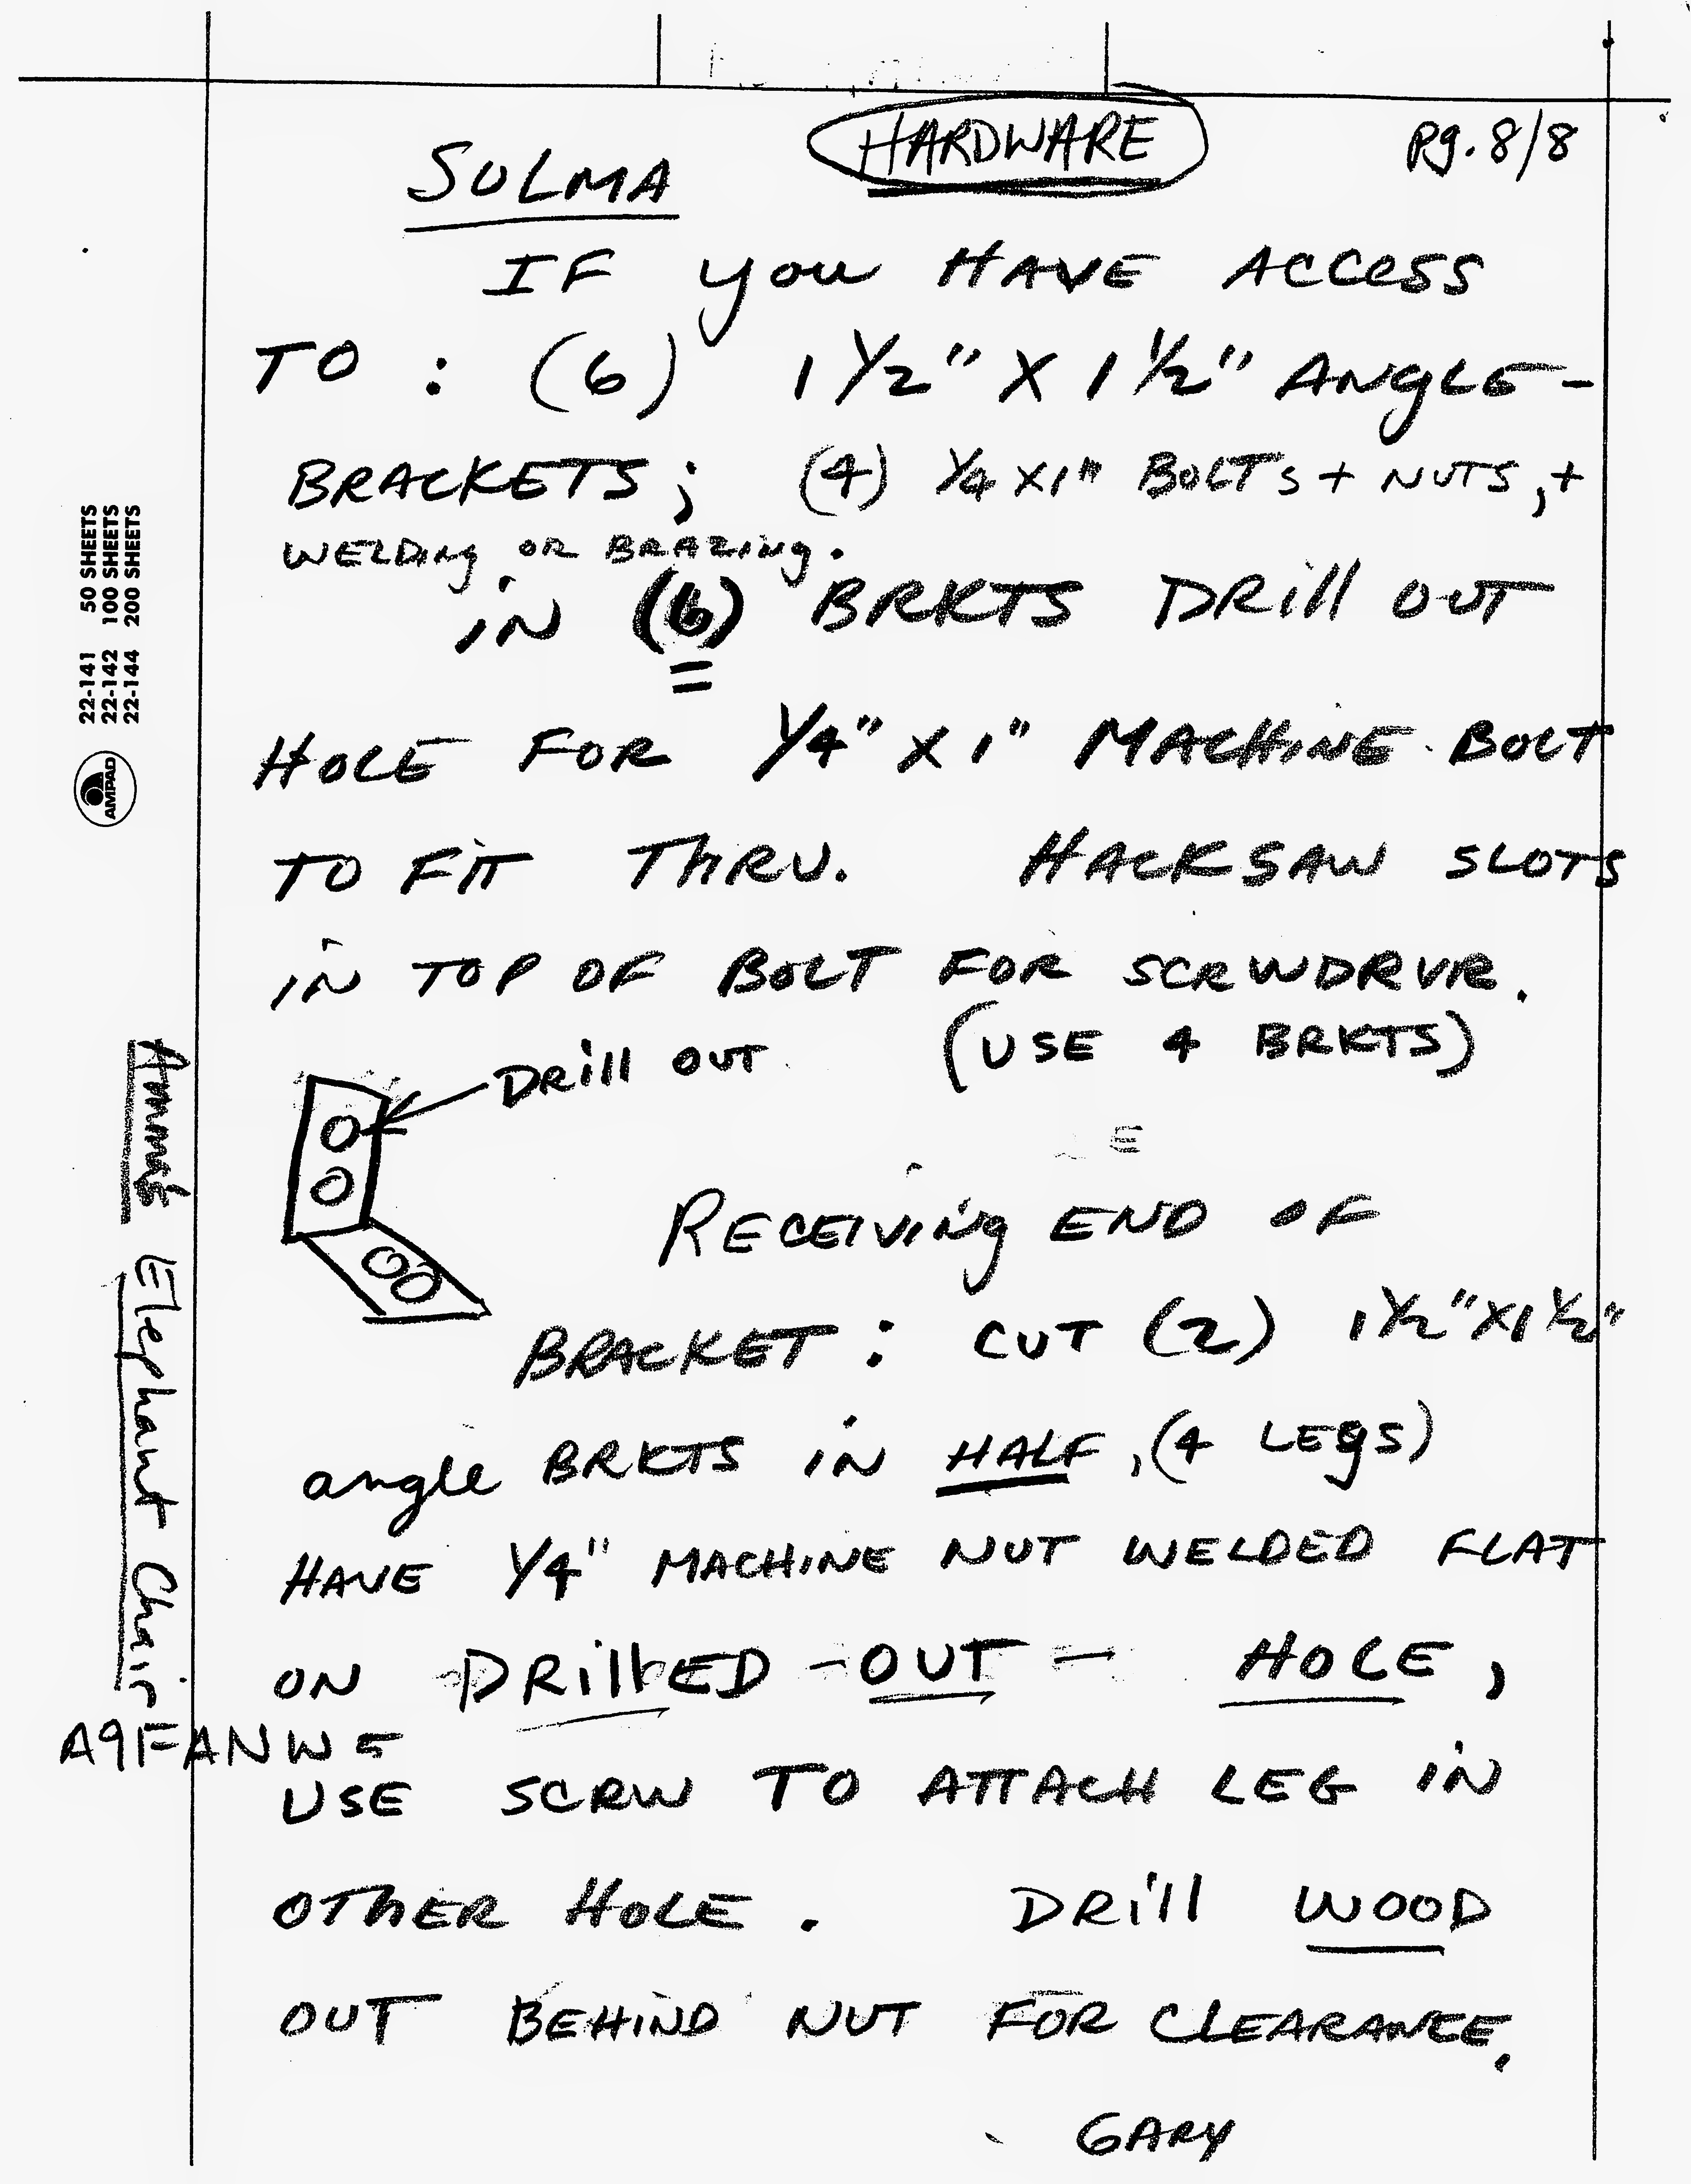 HARDWARE
pg. 8/8
SULMA
IF you HAVE ACCESS
TO : (6) 1 1/2" X 1 1/2" ANGLE-
BRACKETS; (4) 1/4 X 1" BOLTS + NUTS, +
WELDING OR BRAZING.
IN (6) BRKTS DRill OUT
HOLE FOR 1/4" X 1" MACHINE BOLT
TO FIT THRU. HACKSAW SLOTS
IN TOP OF BOLT FOR SCRWDRVR.
(USE 4 BRKTS)
DRill OUT
RECEIVING END OF
BRACKET : CUT (2) 1 1/2" X 1 1/2"
angle BRKTS IN HALF, (4 LEgS)
HAVE 1/4" MACHINE NUT WELDED FLAT
ON DRillED -OUT- HOLE,
USE SCRW TO ATTACH LEG IN
OTHER HOLE. DRill WOOD
OUT BEHIND NUT FOR CLEARANCE.
GARY
22-141 50 SHEETS
22-142 100 SHEETS
22-144 200 SHEETS
AMPAD
Amma's Elephant Chair
A9FANW5